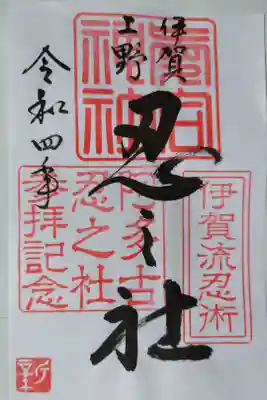 伊賀
上野
忍之社
令和四年
愛宕
神社
伊賀流忍術
阿多古
忍之社
参拝記念